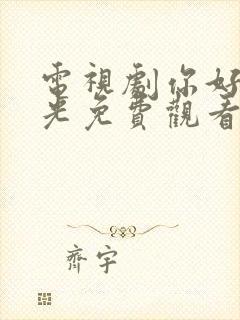 電視劇你好
光免費觀看
齊宇